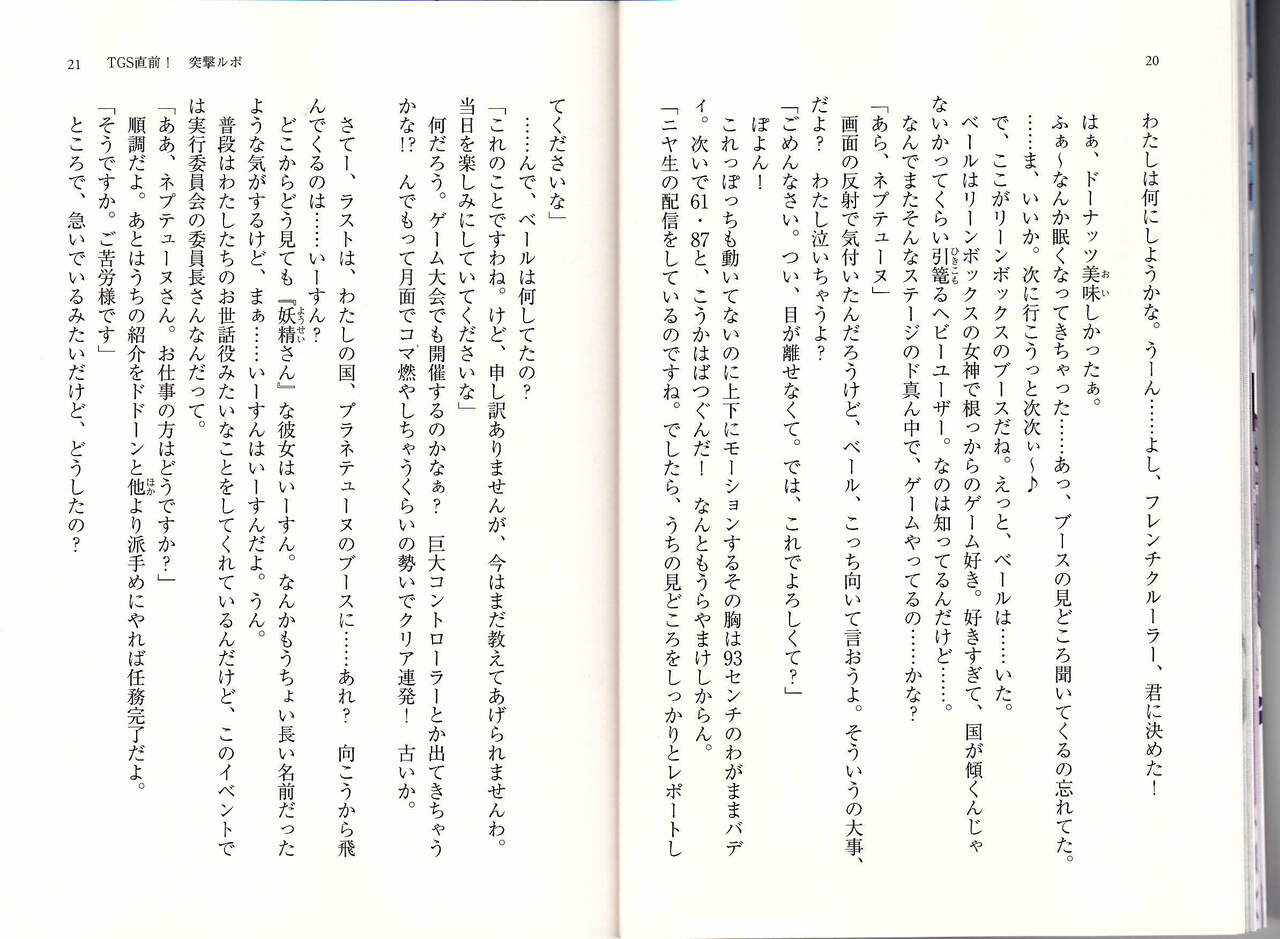 20
わたしは何にしようかな。うーん……よし、フレンチクルーラー、君に決めた！
はぁ、ドーナッツ美味しかったぁ。
ふぁ〜なんか眠くなってきちゃった……あっ、ブースの見どころ聞いてくるの忘れてた。
……ま、いいか。次に行こうっと次次ぃ〜♪
で、ここがリーンボックスのブースだね。えっと、ベールは……いた。
ベールはリーンボックスの女神で根っからのゲーム好き。好きすぎて、国が傾くんじゃ
ないかってくらい引篭るヘビーユーザー。なのは知ってるんだけど……。
なんでまたそんなステージのド真ん中で、ゲームやってるの……かな？
「あら、ネプテューヌ」
画面の反射で気付いたんだろうけど、ベール、こっち向いて言おうよ。そういうの大事、
だよ？　わたし泣いちゃうよ？
「ごめんなさい。つい、目が離せなくて。では、これでよろしくて？」
ぽよん！
これっぽっちも動いてないのに上下にモーションするその胸は93センチのわがままバデ
ィ。次いで61・87と、こうかはばつぐんだ！　なんともうらやまけしからん。
「ニヤ生の配信をしているのですね。でしたら、うちの見どころをしっかりとレポートし
21　TGS直前！　突撃ルポ
てくださいな」
……んで、ベールは何してたの？
「これのことですわね。けど、申し訳ありませんが、今はまだ教えてあげられませんわ。
当日を楽しみにしていてくださいな」
何だろう。ゲーム大会でも開催するのかなぁ？　巨大コントローラーとか出てきちゃう
かな!?　んでもって月面でコマ燃やしちゃうくらいの勢いでクリア連発！　古いか。
さてー、ラストは、わたしの国、プラネテューヌのブースに……あれ？　向こうから飛
んでくるのは……いーすん？
どこからどう見ても『妖精さん』な彼女はいーすん。なんかもうちょい長い名前だった
ような気がするけど、まぁ……いーすんはいーすんだよ。うん。
普段はわたしたちのお世話役みたいなことをしてくれているんだけど、このイベントで
は実行委員会の委員長さんなんだって。
「ああ、ネプテューヌさん。お仕事の方はどうですか？」
順調だよ。あとはうちの紹介をドドーンと他より派手めにやれば任務完了だよ。
「そうですか。ご苦労様です」
ところで、急いでいるみたいだけど、どうしたの？